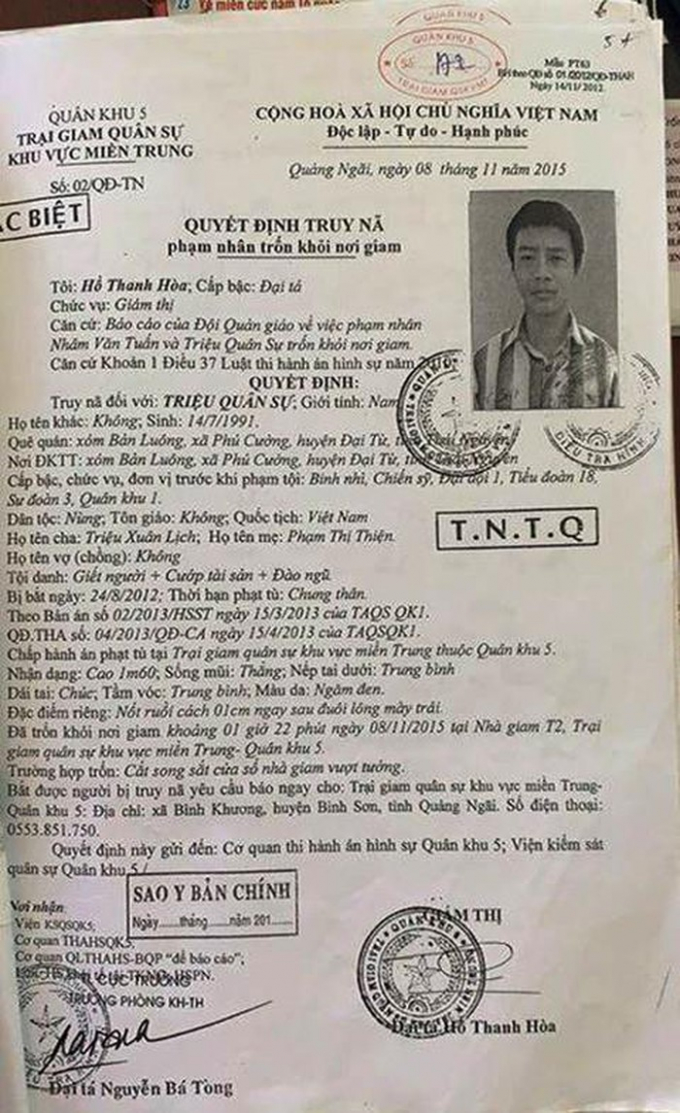 23 Lễ miễn cước năm
QUÂN KHU 5
QUÂN KHU 5
SỐ A2
TRẠI GIAM QSKVMT
5 +
Mẫu PT63
BH theo QĐ số 01/2012/QĐ-THAH
Ngày 14/11/2012
QUÂN KHU 5
TRẠI GIAM QUÂN SỰ
KHU VỰC MIỀN TRUNG
Số: 02/QĐ-TN
CỘNG HOÀ XÃ HỘI CHỦ NGHĨA VIỆT NAM
Độc lập - Tự do - Hạnh phúc
Quảng Ngãi, ngày 08 tháng 11 năm 2015
ẶC BIỆT
QUYẾT ĐỊNH TRUY NÃ
phạm nhân trốn khỏi nơi giam
Tôi: Hồ Thanh Hòa; Cấp bậc: Đại tá
Chức vụ: Giám thị
Căn cứ: Báo cáo của Đội Quản giáo về việc phạm nhân
Nhâm Văn Tuấn và Triệu Quân Sự trốn khỏi nơi giam.
Căn cứ Khoản 1 Điều 37 Luật thi hành án hình sự năm
QUYẾT ĐỊNH:
Truy nã đối với: TRIỆU QUÂN SỰ; Giới tính: Nam
Họ tên khác: Không; Sinh: 14/7/1991.
Quê quán: xóm Bản Luông, xã Phú Cường, huyện Đại Từ, Nguyên.
Nơi ĐKTT: xóm Bản Luông, xã Phú Cường, huyện Đại Từ,
Cấp bậc, chức vụ, đơn vị trước khi phạm tội: Binh nhì, Chiến sỹ, Đại đội 1, Tiểu đoàn 18,
Sư đoàn 3, Quân khu 1.
Dân tộc: Nùng; Tôn giáo: Không; Quốc tịch: Việt Nam
Họ tên cha: Triệu Xuân Lịch; Họ tên mẹ: Phạm Thị Thiện.
T.N.T.Q
Họ tên vợ (chồng): Không
Tội danh: Giết người + Cướp tài sản + Đào ngũ
Bị bắt ngày: 24/8/2012; Thời hạn phạt tù: Chung thân.
Theo Bản án số 02/2013/HSST ngày 15/3/2013 của TAQS QK1.
QĐ.THA số: 04/2013/QĐ-CA ngày 15/4/2013 của TAQSQK1.
Chấp hành án phạt tù tại Trại giam quân sự khu vực miền Trung thuộc Quân khu 5.
Nhận dạng: Cao 1m60; Sống mũi: Thẳng; Nếp tai dưới: Trung bình
Dái tai: Chúc; Tầm vóc: Trung bình; Màu da: Ngăm đen.
Đặc điểm riêng: Nốt ruồi cách 01cm ngay sau đuôi lông mày trái.
Đã trốn khỏi nơi giam khoảng 01 giờ 22 phút ngày 08/11/2015 tại Nhà giam T2, Trại
giam quân sự khu vực miền Trung- Quân khu 5.
Trường hợp trốn: Cắt song sắt cửa sổ nhà giam vượt tường.
Bắt được người bị truy nã yêu cầu báo ngay cho: Trại giam quân sự khu vực miền Trung-
Quân khu 5: Địa chỉ: xã Bình Khương, huyện Bình Sơn, tỉnh Quảng Ngãi. Số điện thoại:
0553.851.750.
Quyết định này gửi đến: Cơ quan thi hành án hình sự Quân khu 5; Viện kiểm sát
quân sự Quân khu 5./.
SAO Y BẢN CHÍNH
Ngày......tháng......năm 201
Nơi nhận:
Viện KSQSQK5;
Cơ quan THAHSQK5;
Cơ quan QLTHAHS-BQP “để báo cáo”;
CỤC TRƯỞNG
TRƯỞNG PHÒNG KH-TH
Đại tá Nguyễn Bá Tòng
GIÁM THỊ
Đại tá Hồ Thanh Hòa